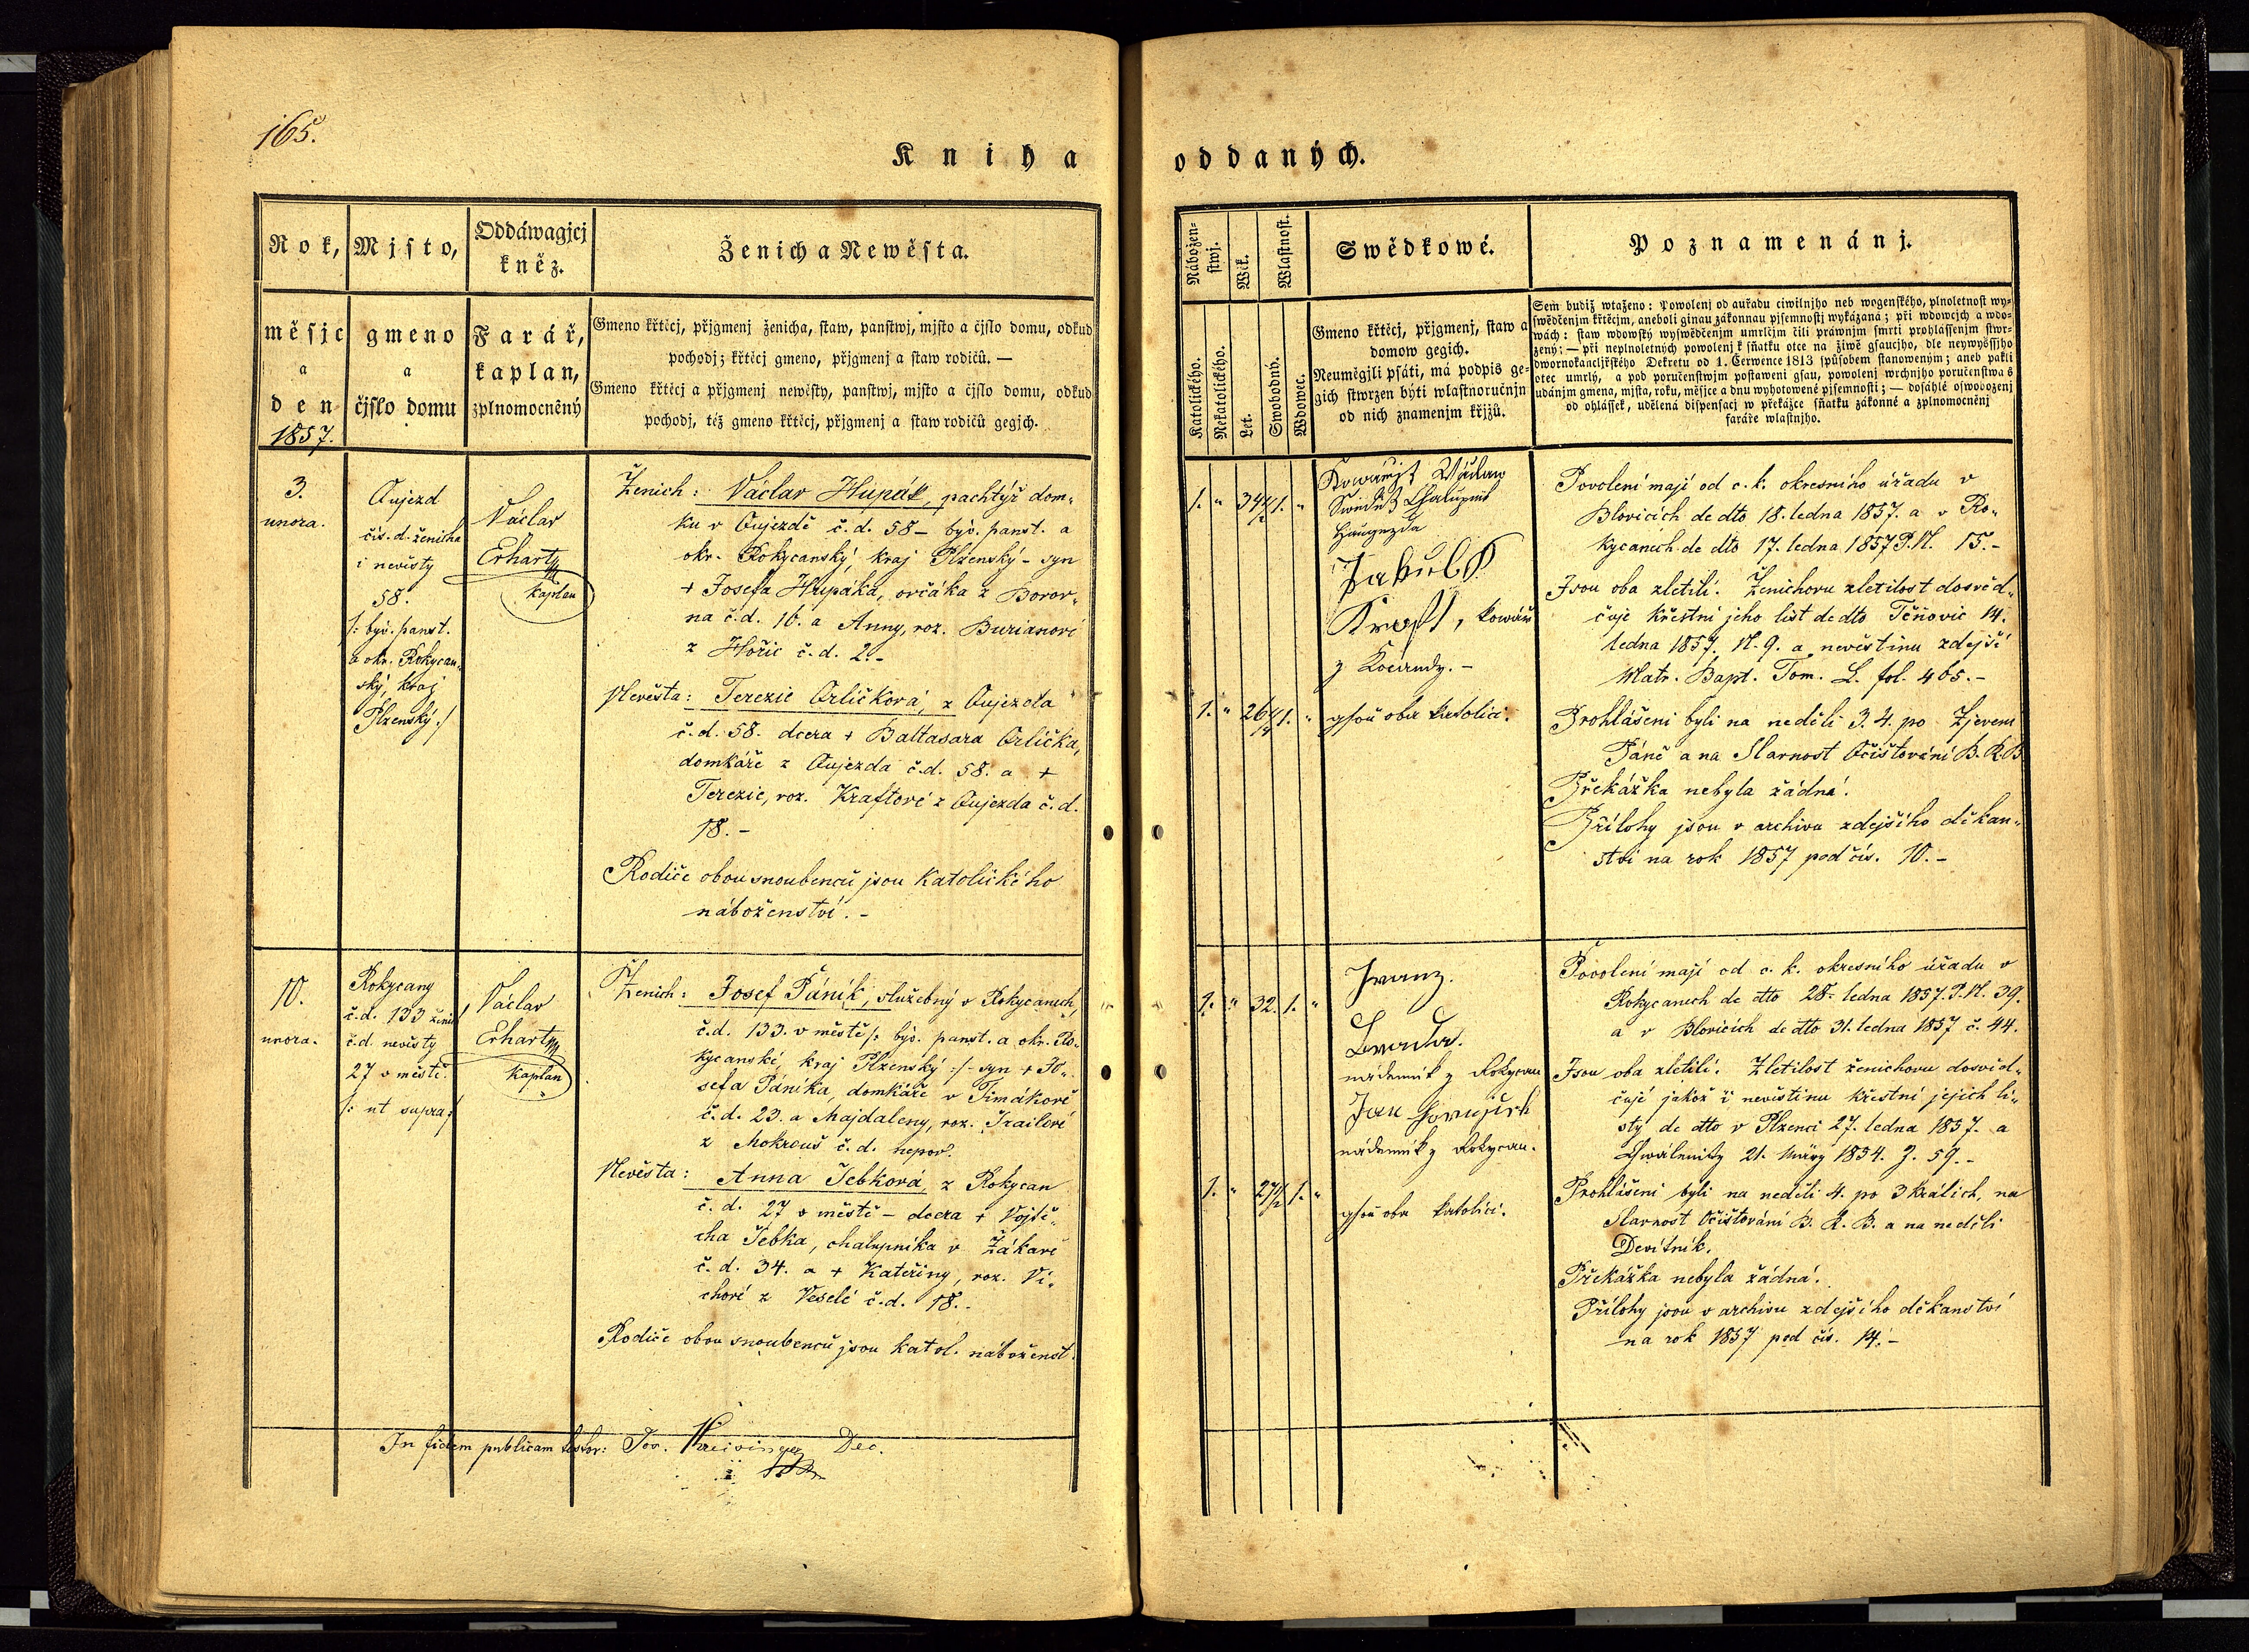 165.
Kniha
Rok,
Mjsto,
Oddáwagjcj
kněz.
Ženich a Newěsta.
měsjc
a
den
1857.
gmeno
a
čjslo domu
Farář,
kaplan,
zplnomocněný
Gmeno křticj, přjgmenj ženicha, staw, panstwj, mjsto a čjslo domu, odkud
pochodj; křticj gmeno, přjgmenj a staw rodičů. —
Gmeno křticj a přjgmenj newěsty, panstwj, mjsto a čjslo domu, odkud
pochodj, též gmeno křticj, přjgmenj a staw rodičů gegjch.
3.
unora.
Oujezd
čís. d. ženicha
i nevěsty
58.
/: býv. panst.
a okr. Rokycan-
ský, kraj
Plzenský :/
Václav
Erhart
kaplan
Ženich: Václav Hupák, pachtýř dom-
ku v Oujezdě č.d. 58 – býv. panst. a
okr. Rokycanský, kraj Plzenský – syn
+ Josefa Hupáka, ovčáka z Borov-
na č.d. 16. a Anny, roz. Burianové
z Hořic č.d. 2. –
Nevěsta: Terezie Orličková, z Oujezda
č.d. 58. dcera + Baltasara Orlička,
domkáře z Oujezda č.d. 58. a +
Terezie, roz. Kraftové z Oujezda č.d.
18. –
Rodiče obou snoubenců jsou katolického
náboženství. –
10.
unora.
Rokycany
č.d. 133 ženich
č.d. nevěsty
27 v městě.
/: ut supra :/
Václav
Erhart
kaplan
Ženich: Josef Páník, služebný v Rokycanech,
č.d. 133. v městě /: býv. panst. a okr. Ro-
kycanské, kraj Plzenský :/ – syn + Jo-
sefa Páníka, domkáře v Timákově
č.d. 23. a Majdaleny, roz.
z Mokrouš č.d. nepov.
Nevěsta: Anna Šebková, z Rokycan
č.d. 27 v městě – dcera + Vojtě-
cha Šebka, chalupníka v Žákavě
č.d. 34. a + Kateřiny, roz. Vi-
chové z Veselé č.d. 18. –
Rodiče obou snoubenců jsou katol. náboženst.
In fidem publicam testor: Jos. Dec.
oddaných.
Nábožen-
stwj.
Wěk.
Wlastnost.
Swědkowé.
Poznamenánj.
Katolického.
Nekatolického.
Let.
Swobodný.
Wdowec.
Gmeno křticj, přjgmenj, staw a
domow gegich.
Neumegjli psáti, má podpis ge-
gich stwrzen býti wlastnoručnjn
od nich znamenjm křjžů.
Sem budiž wtaženo: Powolenj od auřadu ciwilnjho neb wogenského, plnoletnost wy-
swědčenjm křticjm, aneboli ginau zákonnau pjsemnostj wykázaná; při wdowcjch a wdo-
wách: staw wdowský wyswědčenjm umrlčjm čili práwnjm smrti prohlássenjm stwr-
zený; — při neplnoletných powolenj k sňatku otce na žiwě gsaucjho, dle neywyššjho
dwornokancljřského Dekretu od 1. Čerwence 1813 spůsobem stanoweným; aneb pakli
otec umrlý, a pod poručenstwjm postaweni gsau, powolenj wrchnjho poručenstwa s
udánjm gmena, mjsta, roku, měsjce a dnu wyhotowené pjsemnosti; — dosáhlé oswobozenj
od ohlássek, udělená dispensacj w překážce sňatku zákonné a zplnomocněnj
faráře wlastnjho.
1. " 34 1/2 1. "
Václav
Chalupník
Jakub
Kraft, kowář
z Kocandy. –
1. " 26 1/4 1. "
gsou oba katolíci.
Povolení mají od c. k. okresního úřadu v
Blovicích de dto 18. ledna 1857. a v Ro-
kycanech de dto 17. ledna 1857 P.N. 15. –
Jsou oba zletilí. Ženichovu zletilost dosvěd-
čuje křestní jeho list de dto Těňovic 14.
ledna 1857. N. 9. a nevěstinu zdejší
Matr. Bapt. Tom. L. fol. 465. –
Prohlášeni byli na neděli 3. 4. po Zjevení
Páně a na Slavnost Očišťování B.R.P.
Překážka nebyla žádná.
Přílohy jsou v archivu zdejšího děkan-
ství na rok 1857 pod čís. 10. –
1. " 32. 1. "
Franz.
nádenník z Rokycan
Jan
nádenník z Rokycan.
1. " 27 1/2 1. "
gsou oba katolíci.
Povolení mají od c. k. okresního úřadu v
Rokycanech de dto 28. ledna 1857. P.N. 39.
a v Blovicích de dto 31. ledna 1857 č. 44.
Jsou oba zletilí. Zletilost ženichovu dosvěd-
čují jakož i nevěstinu křestní jejich li-
sty de dto v Plzenci 27. ledna 1857. a
Chwálenitz 21. März 1834. Z. 59. –
Prohlášeni byli na neděli 4. po 3 Králích, na
Slavnost Očišťování B. R. P. a na neděli
Devítník.
Překážka nebyla žádná.
Přílohy jsou v archivu zdejšího děkanství
na rok 1857 pod čís. 14. –